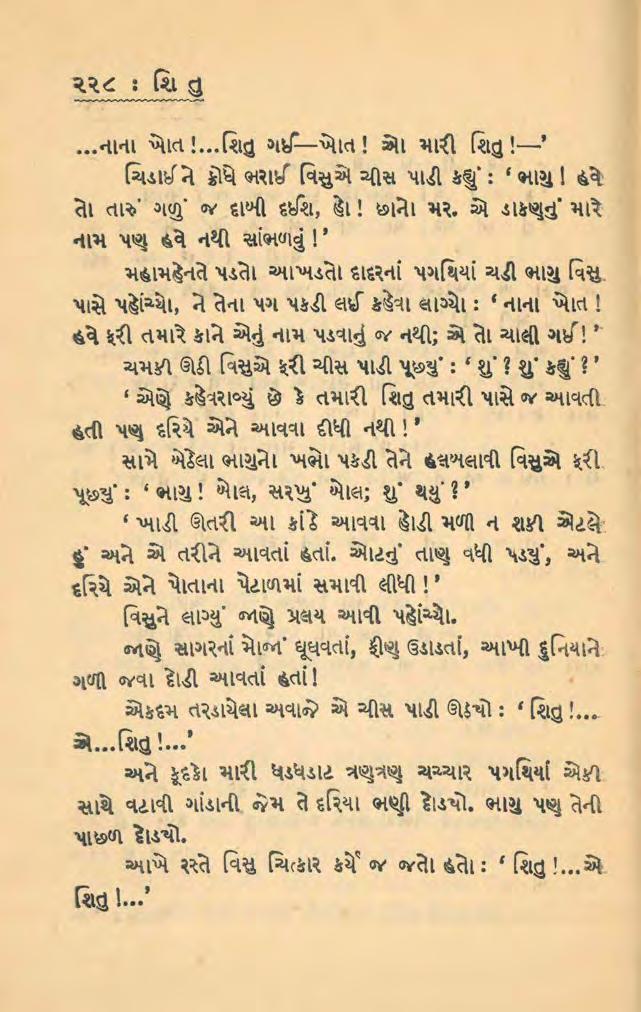 ૨૨૮ : શિ તુ
...નાના ખોત !...શિતુ ગઈ—ખોત ! ઓ મારી શિતુ !—’
ચિડાઈને ક્રોધે ભરાઈ વિસુએ ચીસ પાડી કહ્યું : ‘ ભાગુ ! હવે
તો તારું ગળું જ દાબી દઈશ, હો ! છાનો મર. એ ડાકણનું મારે
નામ પણ હવે નથી સાંભળવું !’
મહામહેનતે પડતો આખડતો દાદરનાં પગથિયાં ચડી ભાગુ વિસુ
પાસે પહોંચ્યો, ને તેના પગ પકડી લઈ કહેવા લાગ્યો : ‘ નાના ખોત !
હવે ફરી તમારે કાને એનું નામ પડવાનું જ નથી; એ તો ચાલી ગઈ !’
ચમકી ઊઠી વિસુએ ફરી ચીસ પાડી પૂછ્યું : ‘ શું ? શું કહ્યું ?’
‘ એણે કહેવરાવ્યું છે કે તમારી શિતુ તમારી પાસે જ આવતી
હતી પણ દરિયે એને આવવા દીધી નથી !’
સામે બેઠેલા ભાગુનો ખભો પકડી તેને હલબલાવી વિસુએ ફરી
પૂછ્યું : ‘ ભાગુ ! બોલ, સરખું બોલ; શું થયું ?’
‘ ખાડી ઊતરી આ કાંઠે આવવા હોડી મળી ન શકી એટલે
હું અને એ તરીને આવતાં હતાં. ઓટનું તાણ વધી પડયું, અને
દરિયે એને પોતાના પેટાળમાં સમાવી લીધી !’
વિસુને લાગ્યું જાણે પ્રલય આવી પહોંચ્યો.
જાણે સાગરનાં મોજાં ઘૂઘવતાં, ફીણ ઉડાડતાં, આખી દુનિયાને
ગળી જવા દોડી આવતાં હતાં!
એકદમ તરડાયેલા અવાજે એ ચીસ પાડી ઊઠયો : ‘ શિતુ !...
એ...શિતુ !...’
અને કૂદકો મારી ધડધડાટ ત્રણત્રણ ચચ્ચાર પગથિયાં એકી
સાથે વટાવી ગાંડાની જેમ તે દરિયા ભણી દોડયો. ભાગુ પણ તેની
પાછળ દોડયો.
આખે રસ્તે વિસુ ચિત્કાર કર્યે જ જતો હતો : ‘ શિતુ !...એ
શિતુ !...’